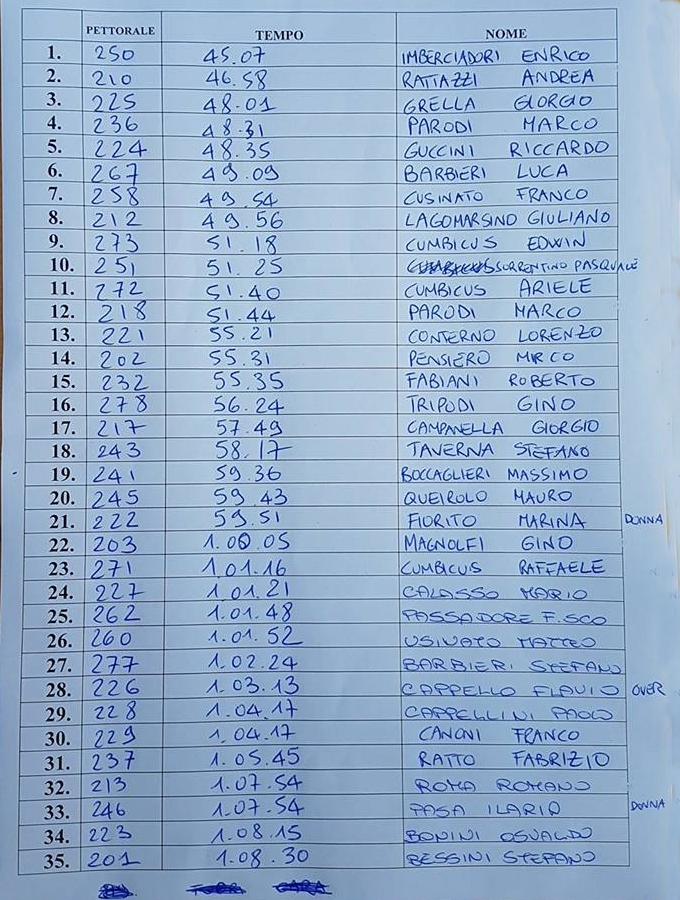 PETTORALE TEMPO NOME
1. 250 45.07 IMBERCIADORI ENRICO
2. 210 46.58 RATTAZZI ANDREA
3. 225 48.01 GRELLA GIORGIO
4. 236 48.31 PARODI MARCO
5. 224 48.35 GUCCINI RICCARDO
6. 267 49.09 BARBIERI LUCA
7. 258 49.54 CUSINATO FRANCO
8. 212 49.56 LAGOMARSINO GIULIANO
9. 273 51.18 CUMBICUS EDWIN
10. 251 51.25 SORRENTINO PASQUALE
11. 272 51.40 CUMBICUS ARIELE
12. 218 51.44 PARODI MARCO
13. 221 55.21 CONTERNO LORENZO
14. 202 55.31 PENSIERO MIRCO
15. 232 55.35 FABIANI ROBERTO
16. 278 56.24 TRIPODI GINO
17. 217 57.49 CAMPANELLA GIORGIO
18. 243 58.17 TAVERNA STEFANO
19. 241 59.36 BOCCAGLIERI MASSIMO
20. 245 59.43 QUEIROLO MAURO
21. 222 59.51 FIORITO MARINA DONNA
22. 203 1.00.05 MAGNOLFI GINO
23. 271 1.01.16 CUMBICUS RAFFAELE
24. 227 1.01.21 CALASSO MARIO
25. 262 1.01.48 PASSADORE F.SCO
26. 260 1.01.52 USINATO MATTEO
27. 277 1.02.24 BARBIERI STEFANO
28. 226 1.03.13 CAPPELLO FLAVIO OVER
29. 228 1.04.17 CAPPELLINI PAOLO
30. 229 1.04.17 CANONI FRANCO
31. 237 1.05.45 RATTO FABRIZIO
32. 213 1.07.54 ROMA ROMANO
33. 246 1.07.54 PASA ILARIA DONNA
34. 223 1.08.15 BONINI OSVALDO
35. 201 1.08.30 BESSINI STEFANO